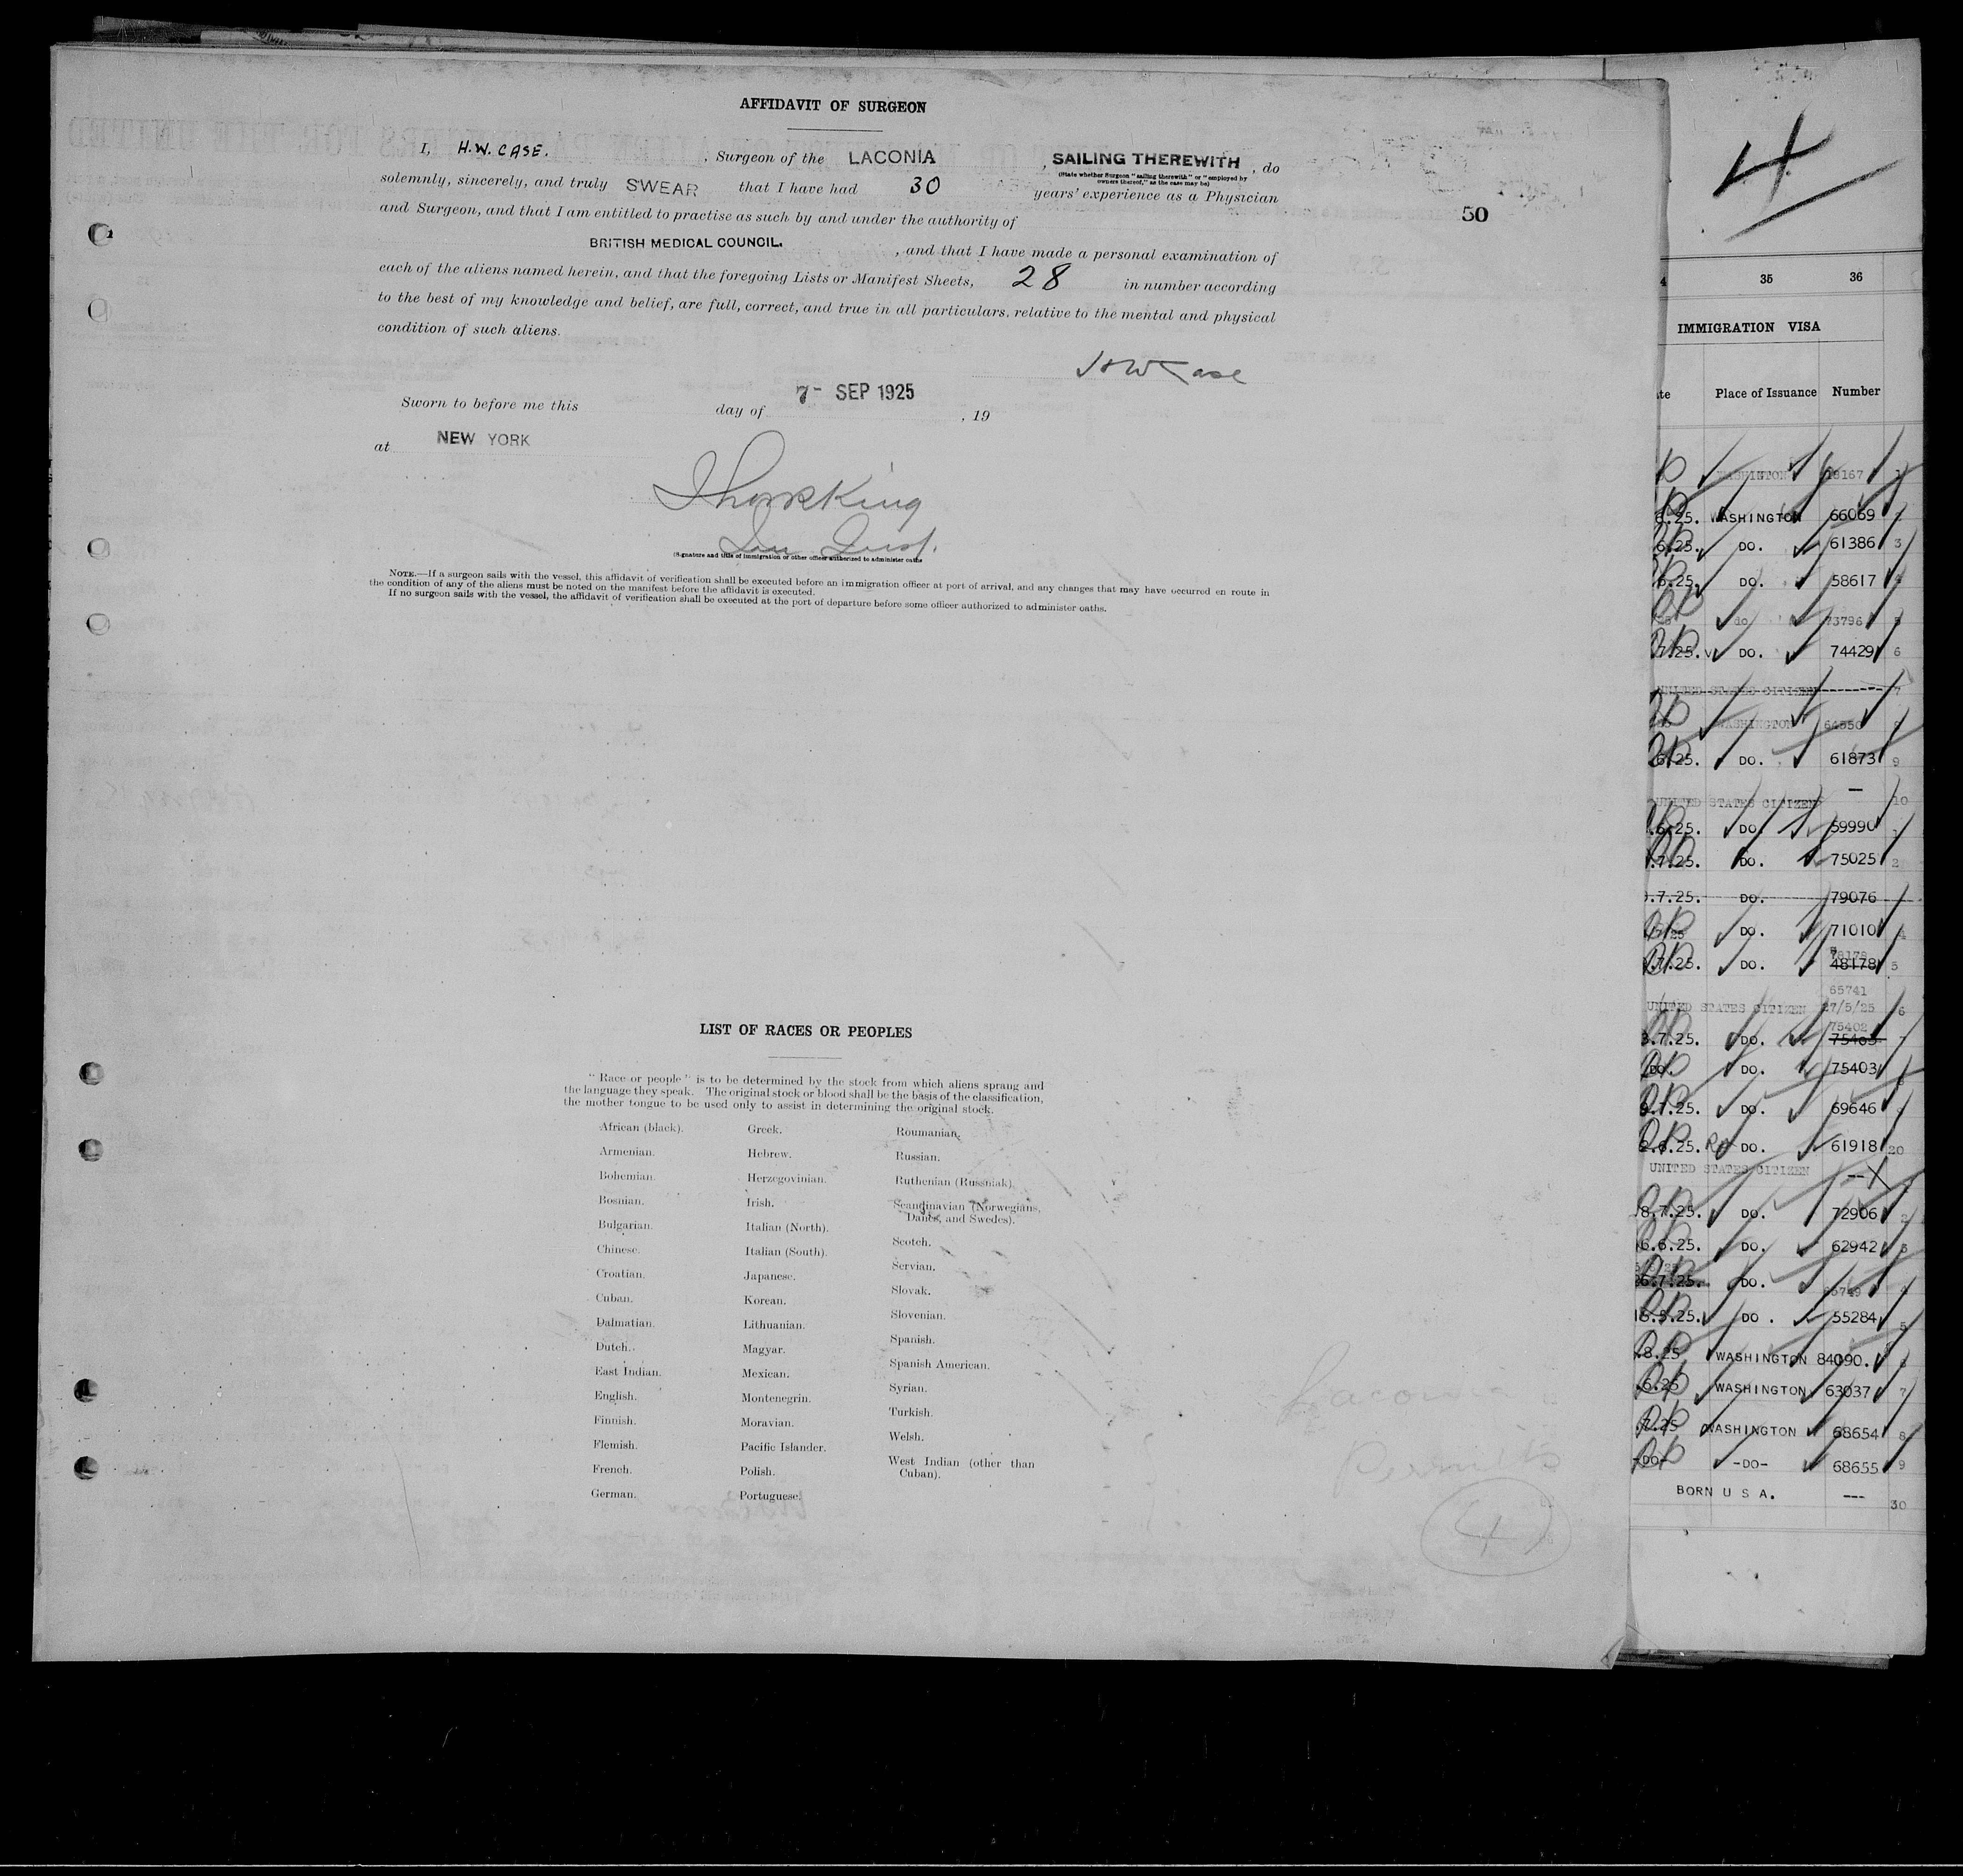 AFFIDAVIT OF SURGEON
I, H.W. CASE. , Surgeon of the LACONIA , SAILING THEREWITH , do
(State whether Surgeon "sailing therewith" or "employed by
owners thereof," as the case may be)
solemnly, sincerely, and truly SWEAR that I have had 30 years' experience as a Physician
and Surgeon, and that I am entitled to practise as such by and under the authority of
50
BRITISH MEDICAL COUNCIL. , and that I have made a personal examination of
each of the aliens named herein, and that the foregoing Lists or Manifest Sheets, 28 in number according
to the best of my knowledge and belief, are full, correct, and true in all particulars, relative to the mental and physical
condition of such aliens.
HW Case
Sworn to before me this 7- SEP 1925 day of , 19
at NEW YORK
King
(Signature and title of immigration or other officer authorized to administer oaths
NOTE.—If a surgeon sails with the vessel, this affidavit of verification shall be executed before an immigration officer at port of arrival, and any changes that may have occurred en route in
the condition of any of the aliens must be noted on the manifest before the affidavit is executed.
If no surgeon sails with the vessel, the affidavit of verification shall be executed at the port of departure before some officer authorized to administer oaths.
LIST OF RACES OR PEOPLES
"Race or people" is to be determined by the stock from which aliens sprang and
the language they speak. The original stock or blood shall be the basis of the classification,
the mother tongue to be used only to assist in determining the original stock.
African (black).
Armenian.
Bohemian.
Bosnian.
Bulgarian.
Chinese.
Croatian.
Cuban.
Dalmatian.
Dutch.
East Indian.
English.
Finnish.
Flemish.
French.
German.
Greek.
Hebrew.
Herzegovinian.
Irish.
Italian (North).
Italian (South).
Japanese.
Korean.
Lithuanian.
Magyar.
Mexican.
Montenegrin.
Moravian.
Pacific Islander.
Polish.
Portuguese.
Roumanian.
Russian.
Ruthenian (Russniak).
Scandinavian (Norwegians,
Danes, and Swedes).
Scotch.
Servian.
Slovak.
Slovenian.
Spanish.
Spanish American.
Syrian.
Turkish.
Welsh.
West Indian (other than
Cuban).
Laconia
Permits
4
4
4 35 36
IMMIGRATION VISA
te Place of Issuance Number
WASHINGTON 18167 1
6.25. WASHINGTON 66069
6.25. DO. 61386 3
6.25. DO. 58617 4
do 73796 5
7.25. DO. 74429 6
UNITED STATES CITIZEN-------- 7
WASHINGTON 64550 8
6.25. DO. 61873 9
UNITED STATES CITIZEN — 10
.6.25. DO. 59990
.7.25. DO. 75025 2
.7.25. DO. 79076
DO. 71010 4
78178
.7.25. DO. 48178 5
65741
UNITED STATES CITIZEN 27/5/25 6
75402
3.7.25. DO. 75403
DO. DO. 75403
9.7.25. DO. 69646
2.6.25. DO. 61918 20
UNITED STATES CITIZEN -- X
8.7.25. DO. 72906 2
6.6.25. DO. 62942 3
26.7.25. DO. 4
15.5.25. DO. 55284 5
.8.25 WASHINGTON 84090.
.6.25 WASHINGTON 63037 7
.7.25 WASHINGTON 68654 8
-DO- -DO- 68655 9
BORN U S A. --- 30